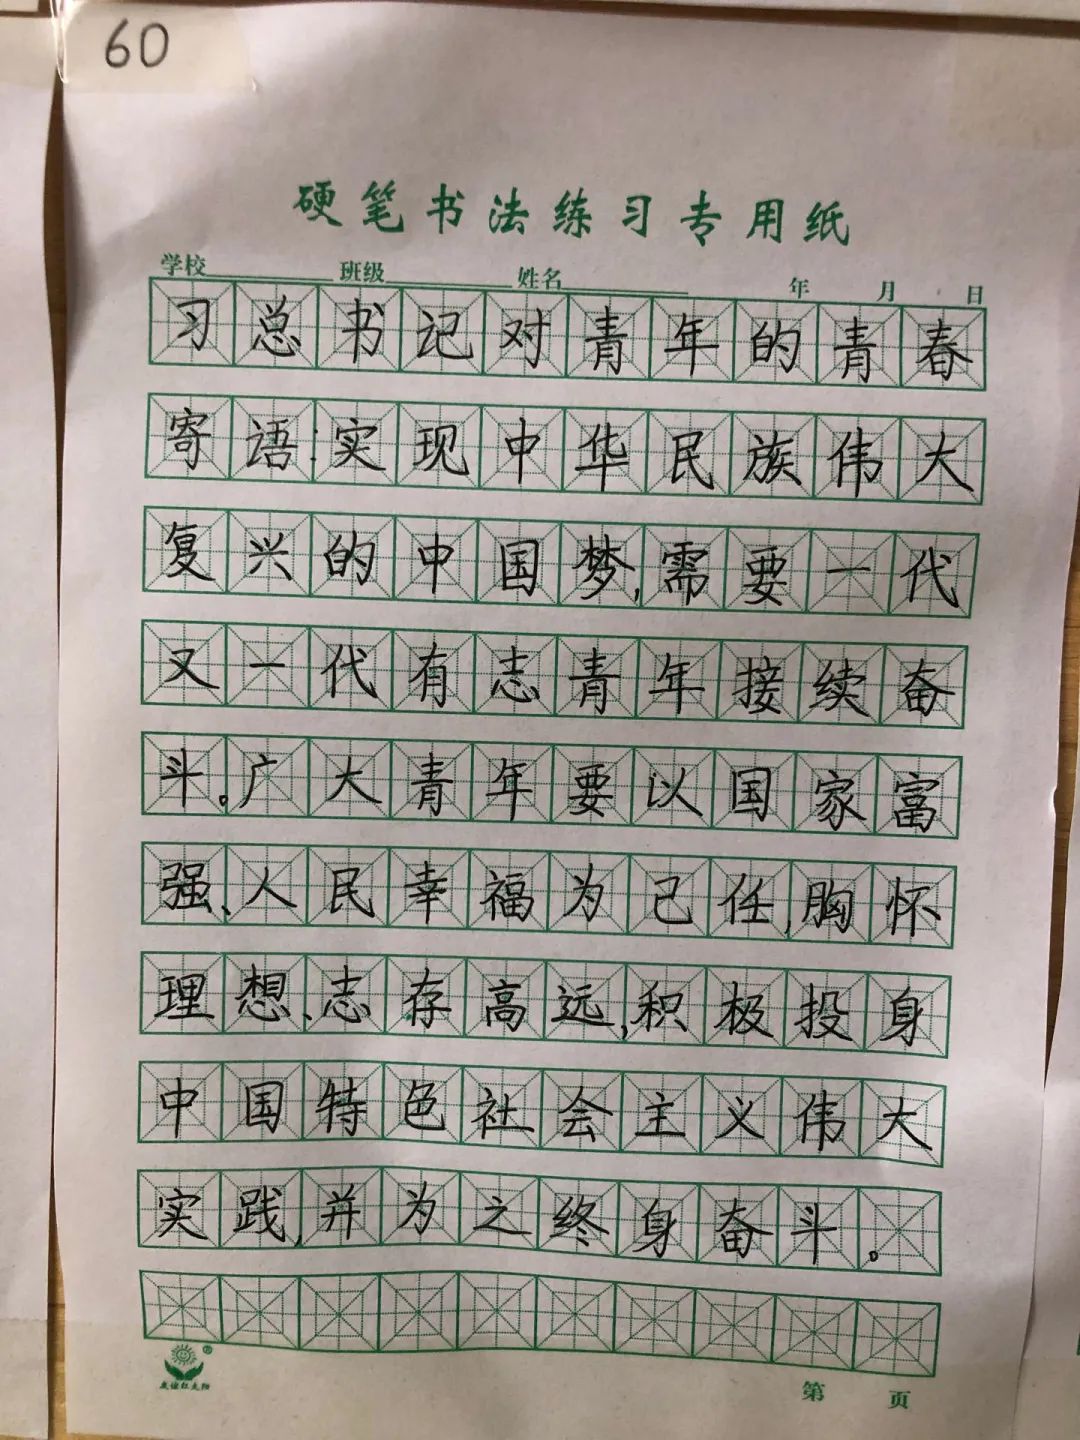 60
硬笔书法练习专用纸
学校 班级 姓名 年 月 日
习总书记对青年的青春
寄语:实现中华民族伟大
复兴的中国梦,需要一代
又一代有志青年接续奋
斗。广大青年要以国家富
强、人民幸福为己任,胸怀
理想、志存高远,积极投身
中国特色社会主义伟大
实践,并为之终身奋斗。
®
第 页